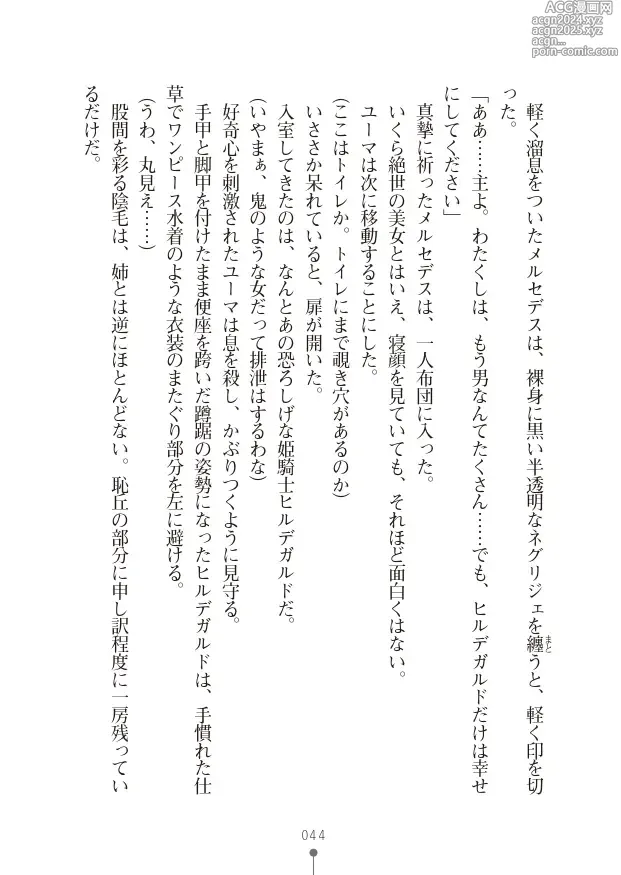 ACG漫画网
acgn2024.xyz
acgn2025.xyz
acgn...
porn-comic.com
軽く溜息をついたメルセデスは、裸身に黒い半透明なネグリジェを纏うと、軽く印を切
まと
った。
「ああ……主よ。わたくしは、もう男なんてたくさん……でも、ヒルデガルドだけは幸せ
にしてください」
真摯に祈ったメルセデスは、一人布団に入った。
いくら絶世の美女とはいえ、寝顔を見ていても、それほど面白くはない。
ユーマは次に移動することにした。
(ここはトイレか。トイレにまで覗き穴があるのか)
いささか呆れていると、扉が開いた。
入室してきたのは、なんとあの恐ろしげな姫騎士ヒルデガルドだ。
(いやまぁ、鬼のような女だって排泄はするわな)
好奇心を刺激されたユーマは息を殺し、かぶりつくように見守る。
手甲と脚甲を付けたまま便座を跨いだ蹲踞の姿勢になったヒルデガルドは、手慣れた仕
草でワンピース水着のような衣装のまたぐり部分を左に避ける。
(うわ、丸見え……)
股間を彩る陰毛は、姉とは逆にほとんどない。恥丘の部分に申し訳程度に一房残ってい
るだけだ。
044